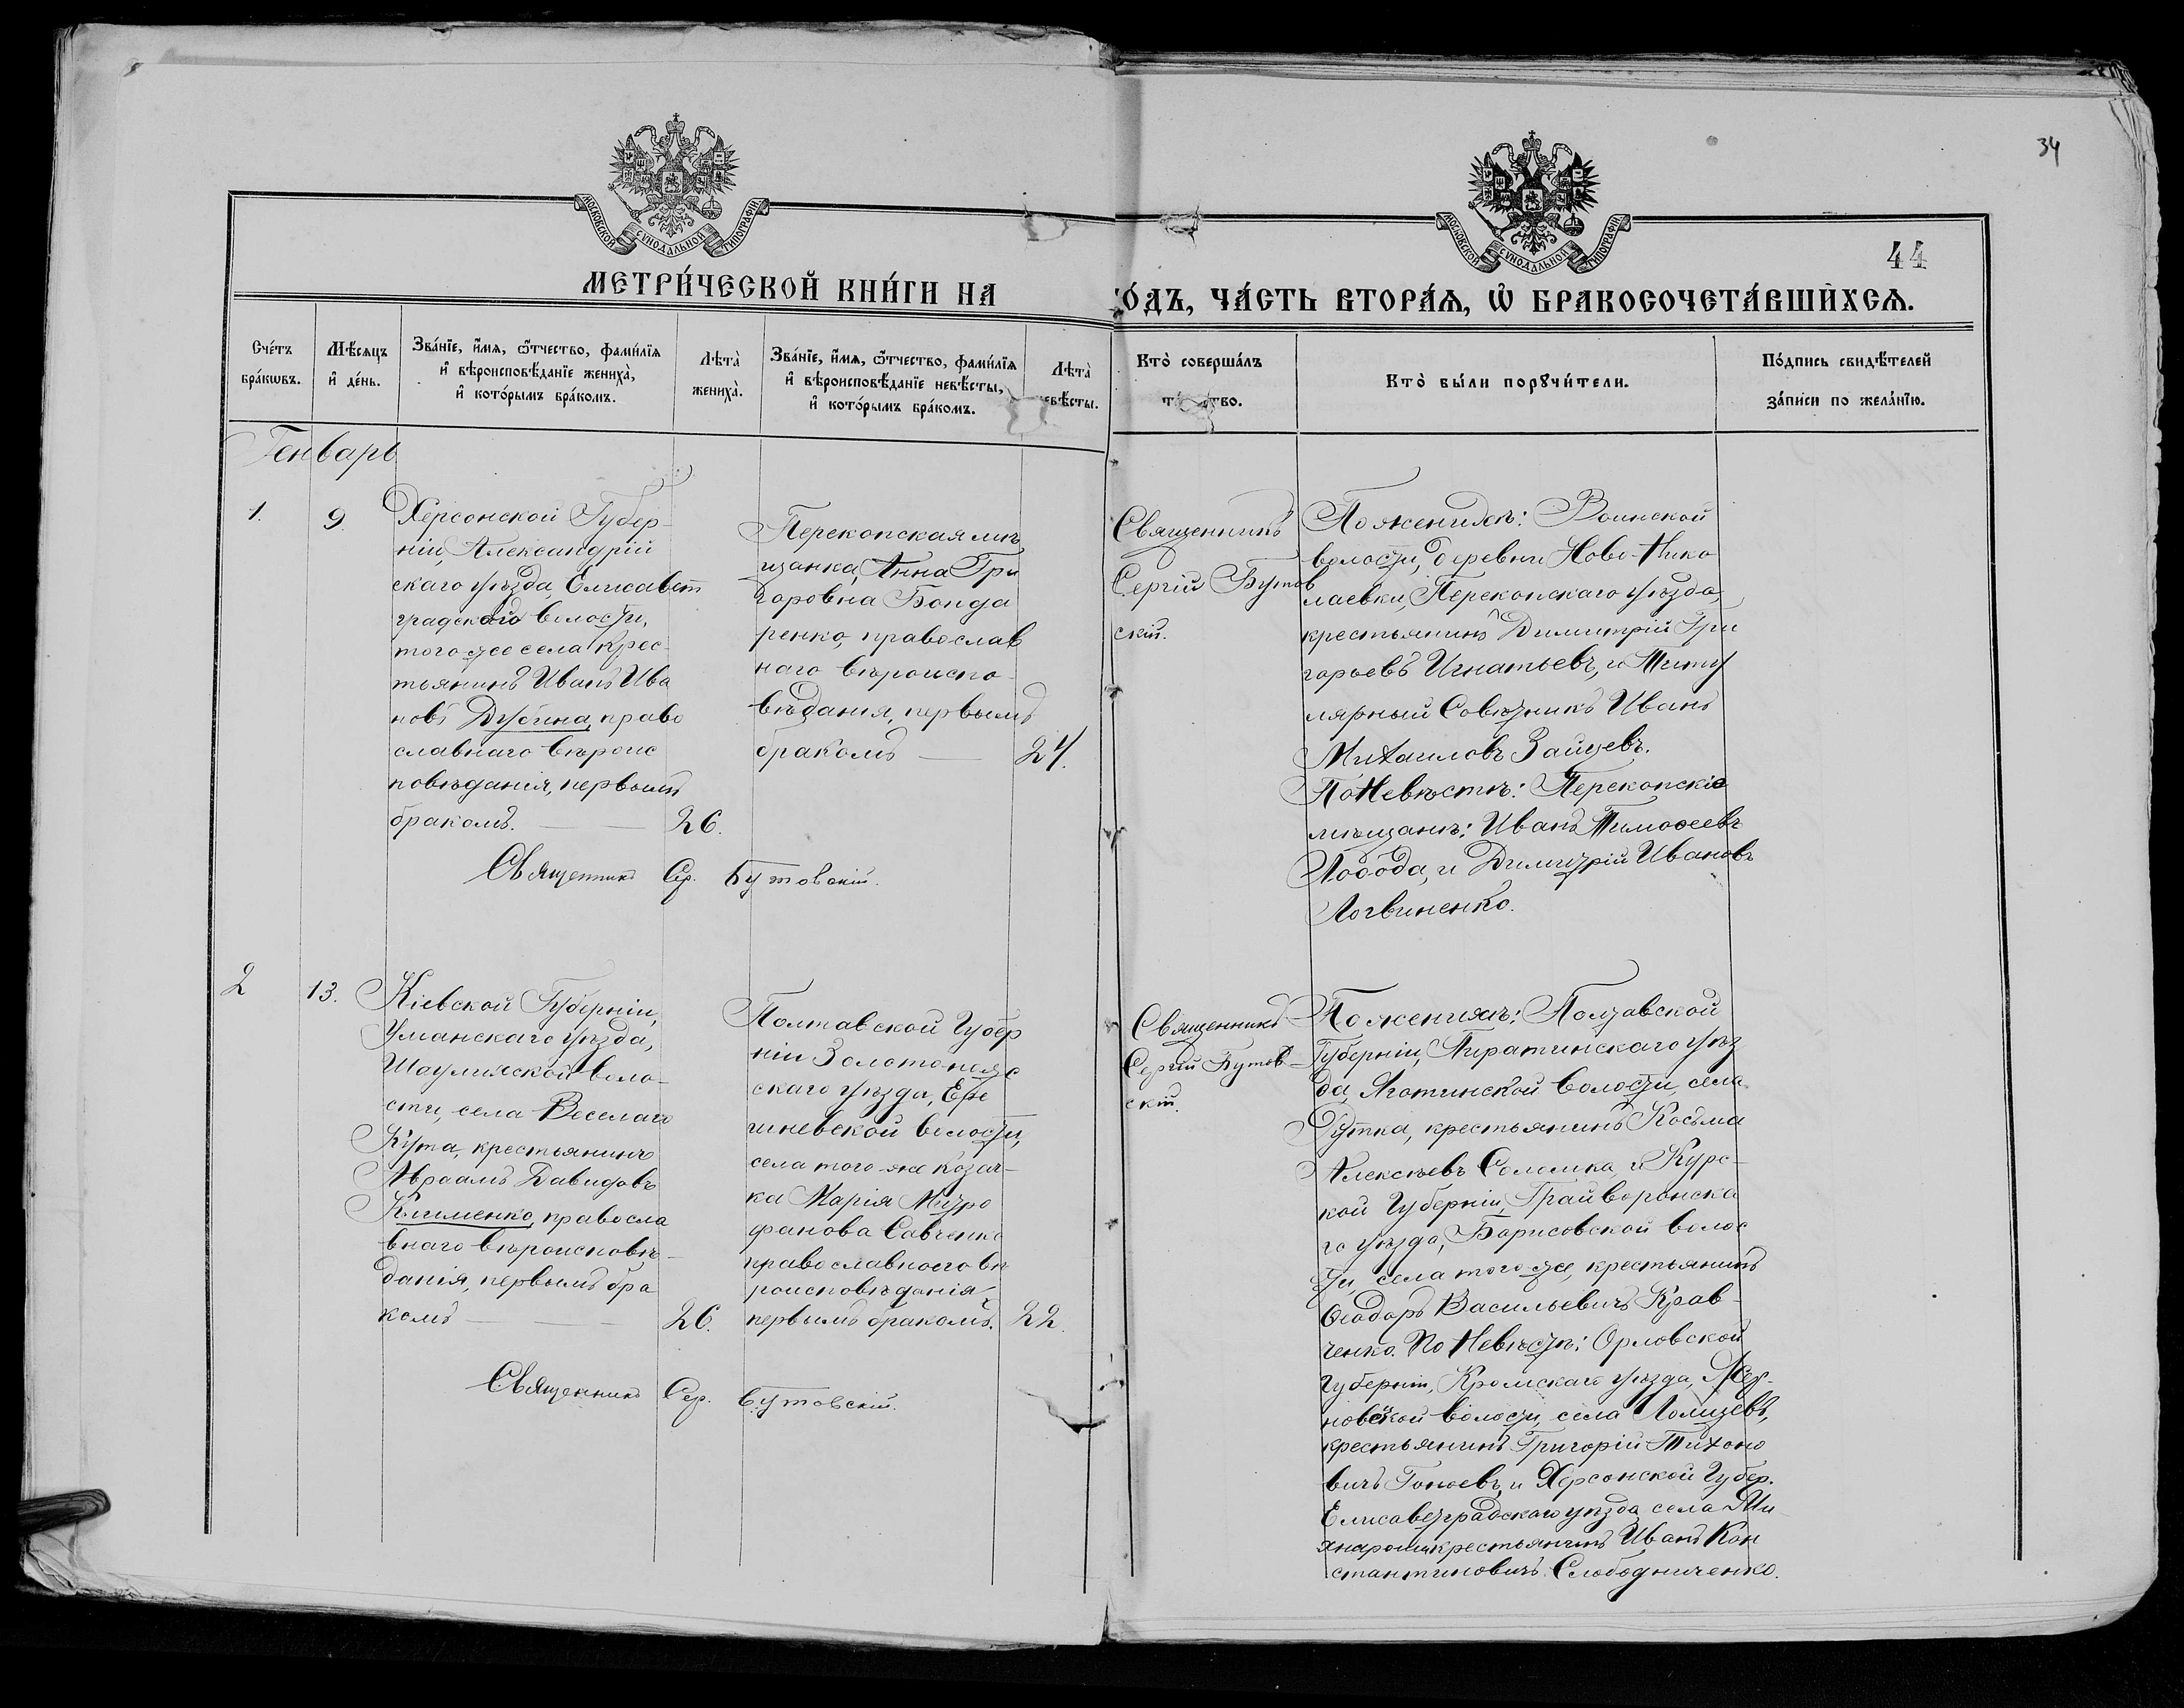 34
МОСКОВСКОЙ СѴНОДАЛЬНОЙ ТИПОГРАФІИ
МОСКОВСКОЙ СѴНОДАЛЬНОЙ ТИПОГРАФІИ
44
МЕТРИ́ЧЕСКОЙ КНИ́ГИ НА
ГО́ДЪ, ЧА́СТЬ ВТОРА́Я, Ѽ БРАКОСОЧЕТА́ВШИХСѦ.
Сче́тъ
бра́кѡвъ.
Мѣ́сяцъ
и҆ де́нь.
Зва́нїе, и҆́мѧ, ѻ҆́тчество, фами́лїѧ
и҆ вѣроисповѣ́данїе жениха̀,
и҆ кото́рымъ бра́комъ.
Лѣта̀
жениха̀.
Зва́нїе, и҆́мѧ, ѻ҆́тчество, фами́лїѧ
и҆ вѣроисповѣ́данїе невѣ́сты,
и҆ кото́рымъ бра́комъ.
Лѣта̀
невѣ́сты.
Кто̀ соверша́лъ
Кто̀ бы́ли порꙋчи́тели.
По́дпись свидѣ́телей
за́писи по жела́нїю.
Генварь
1.
9.
Херсонской Губер-
ніи, Александрій
скаго уѣзда, Елисавет
градской волости,
того-же села крес-
тьянинъ Иванъ Ива
новъ Дубина, право
славнаго вѣроис
повѣданія, первымъ
бракомъ. — — 26.
Перекопская мѣ
щанка, Анна Гри
горовна Бонда
ренко, православ
наго вѣроиспо-
вѣданія, первымъ
бракомъ — 24.
Священникъ
Сергій Бутов
скій.
По женихѣ: Воинской
волости, деревни Ново-Нико
лаевки, Перекопскаго уѣзда,
крестьянинъ Димитрій Гри
горьевъ Игнатьевъ, и Титу
лярный Совѣтникъ Иванъ
Михаиловъ Зайцевъ.
По Невѣстѣ: Перекопскіе
мѣщане: Иванъ Тимофеевъ
Лобода, и Димитрій Ивановъ
Логвиненко.
Священникъ Сер. Бутовскій.
2
13.
Кіевской Губерніи,
Уманскаго уѣзда,
воло-
сти, села Веселаго
Кута, крестьянинъ
Авраамъ Давидовъ
Клименко, правосла
внаго вѣроисповѣ-
данія, первымъ бра
комъ — — 26.
Полтавской Губер
ніи Золотонояс
скаго уѣзда,
волости,
села того-же козач-
ка Марія Митро
фанова Савченко
православного вѣ
роисповѣданія,
первымъ бракомъ. 22.
Священникъ
Сергій Бутов-
скій.
По женихѣ: Полтавской
Губерніи, Пирятинскаго уѣз
да, Яготинской волости, села
крестьянинъ Косьма
Алексѣевъ Соломка, и Курс-
кой Губерніи, Грайворонска
го уѣзда, Борисовской волос
ти, села того-же, крестьянинъ
Ѳеодоръ Васильевичъ Крав-
ченко. По Невѣстѣ: Орловской
Губерніи, Кромскаго уѣзда,
волости, села
крестьянинъ Григорій Тихоно
вичъ и Херсонской Губер.
Елисаветградскаго уѣзда, села
крестьянинъ Иванъ Кон
стантиновичъ Слободниченко.
Священникъ Сер. Бутовскій.